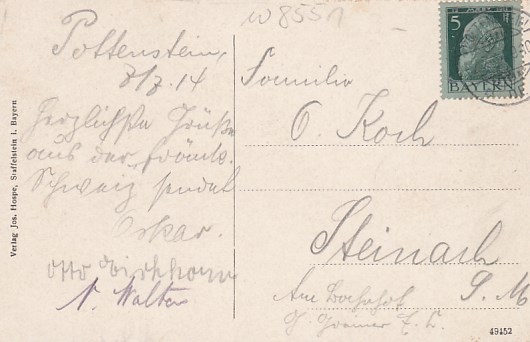 w 8551
Pottenstein,
8/7.14
Herzlichste Grüße
aus der fränk.
Schweiz sendet
Oskar.
Otto
N. Walter
Verlag Jos. Hospe, Staffelstein i. Bayern
5
BAYERN
Familie
O. Koch
Steinach
S. M
Am Bahnhof
49452